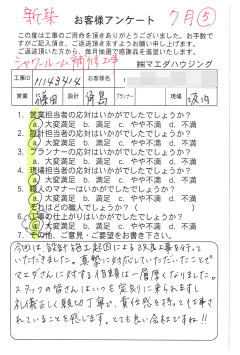 新築 お客様アンケート 7月⑤
この度は工事のご用命を頂きありがとうございます。お手数で
すがご記入頂き、ご返送頂きますようお願い申し上げます。
ご返送頂いた方から、毎月抽選で感謝品を進呈いたします。
シャワールーム補修工事 ㈱マエダハウジング
工事ID お客様名
営業 篠田 設計 角島 プランナー 現場 坂内
1. 営業担当者の応対はいかがでしたでしょうか?
ⓐ 大変満足 b 満足 c やや不満 d 不満
2. 設計担当者の応対はいかがでしたでしょうか?
ⓐ 大変満足 b 満足 c やや不満 d 不満
3. プランナーの応対はいかがでしたでしょうか?
a 大変満足 b 満足 c やや不満 d 不満
4. 現場担当者の応対はいかがでしたでしょうか?
ⓐ 大変満足 b 満足 c やや不満 d 不満
5. 職人のマナーはいかがでしたでしょうか?
ⓐ 大変満足 b 満足 c やや不満 d 不満
それはどの職人でしょうか?
6. 工事の仕上がりはいかがでしたでしょうか?
ⓐ 大変満足 b 満足 c やや不満 d 不満
7. その他、ご意見・ご要望をお書き下さい。
今回は設計施工起因による改良工事を行って
いただきました。真摯に対応していただいたことで
マエダさんに対する信頼は一層厚くなりました。
スタッフの皆さんはいつも気別に来られますし
礼儀正しく親切丁寧で、責任感を持って仕事さ
れていることを感じます。とても良い会社ですね!!